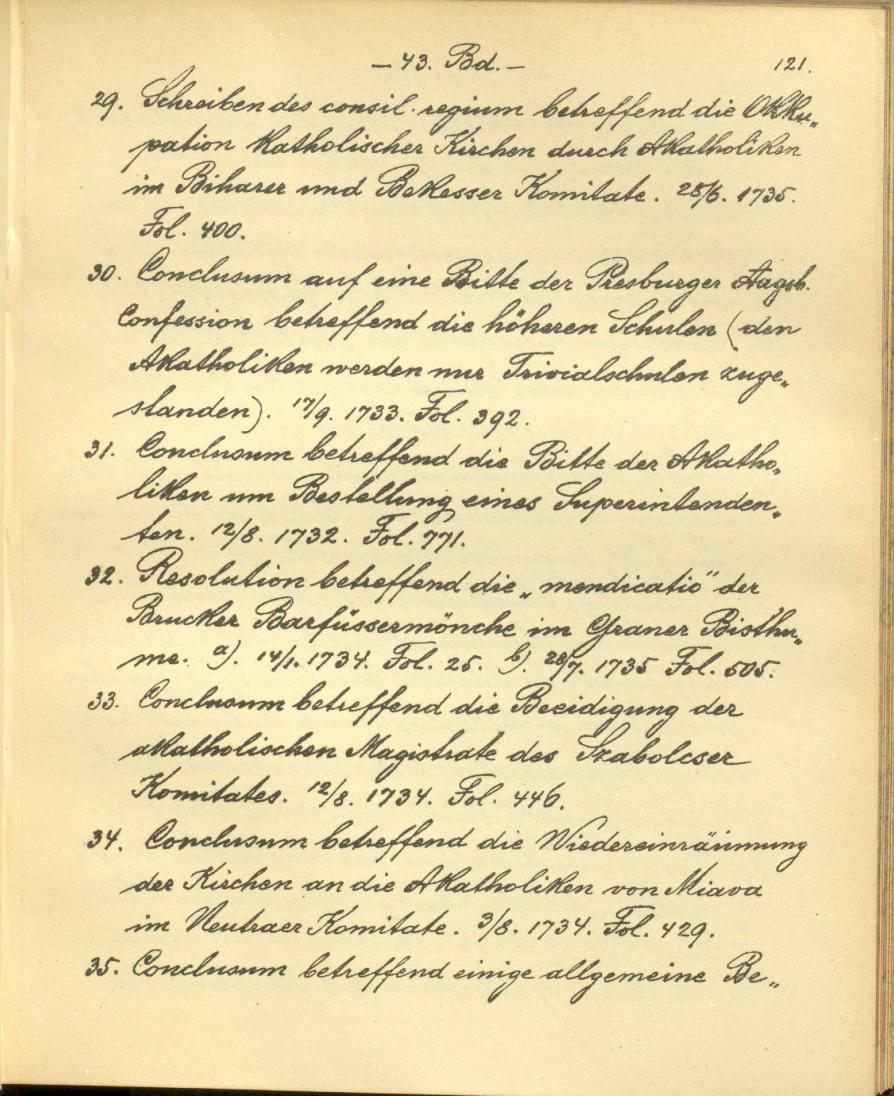 — 43. Bd. — 121.
29. Schreiben des consil. regium betreffend die Okku„
pation katholischer Kirchen durch Akatholiken
im Biharer und Bekesser Komitate. 28/6. 1735.
Fol. 400.
30. Conclusum auf eine Bitte der Presburger Augsb.
Confession betreffend die höheren Schulen (den
Akatholiken werden nur Trivialschulen zuge„
standen). 17/9. 1733. Fol. 392.
31. Conclusum betreffend die Bitte der Akatho„
liken um Bestellung eines Superintenden„
ten. 12/8. 1732. Fol. 771.
32. Resolution betreffend die „mendicatio" der
Brucker Barfüssermönche im Graner Bisthu„
me. a). 14/1. 1734. Fol. 25. b). 28/7. 1735 Fol. 505.
33. Conclusum betreffend die Beeidigung der
akatholischen Magistrate des Szabolcser
Komitates. 12/8. 1734. Fol. 446.
34. Conclusum betreffend die Wiedereinräumung
der Kirchen an die Akatholiken von Miava
im Neutraer Komitate. 3/8. 1734. Fol. 429.
35. Conclusum betreffend einige allgemeine Be„